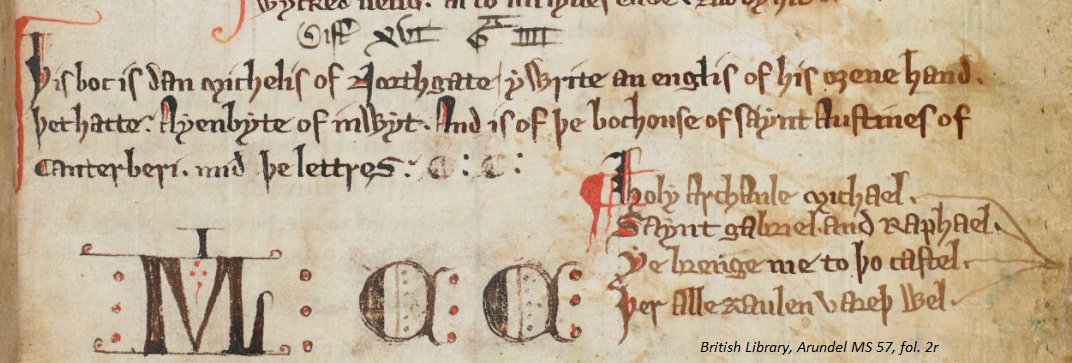 Dist' XVI G IIII
Þis boc is dan Michelis of Northgate / ywrite an englis of his oȝene hand.
þet hatte: Ayenbyte of inwyt. And is of þe bochouse of saynt Austines of
Canterberi. mid þe lettres: C: C:
Holy archanle Michael.
Saynt gabriel. and Raphael.
Ye brenge me to þo castel.
Þer alle zaulen vareþ wel.
British Library, Arundel MS 57, fol. 2r